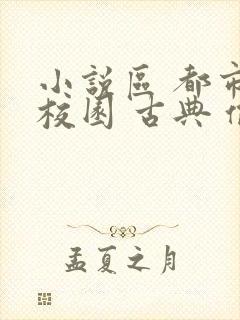 小說區 都市
校園 古典
孟夏之月